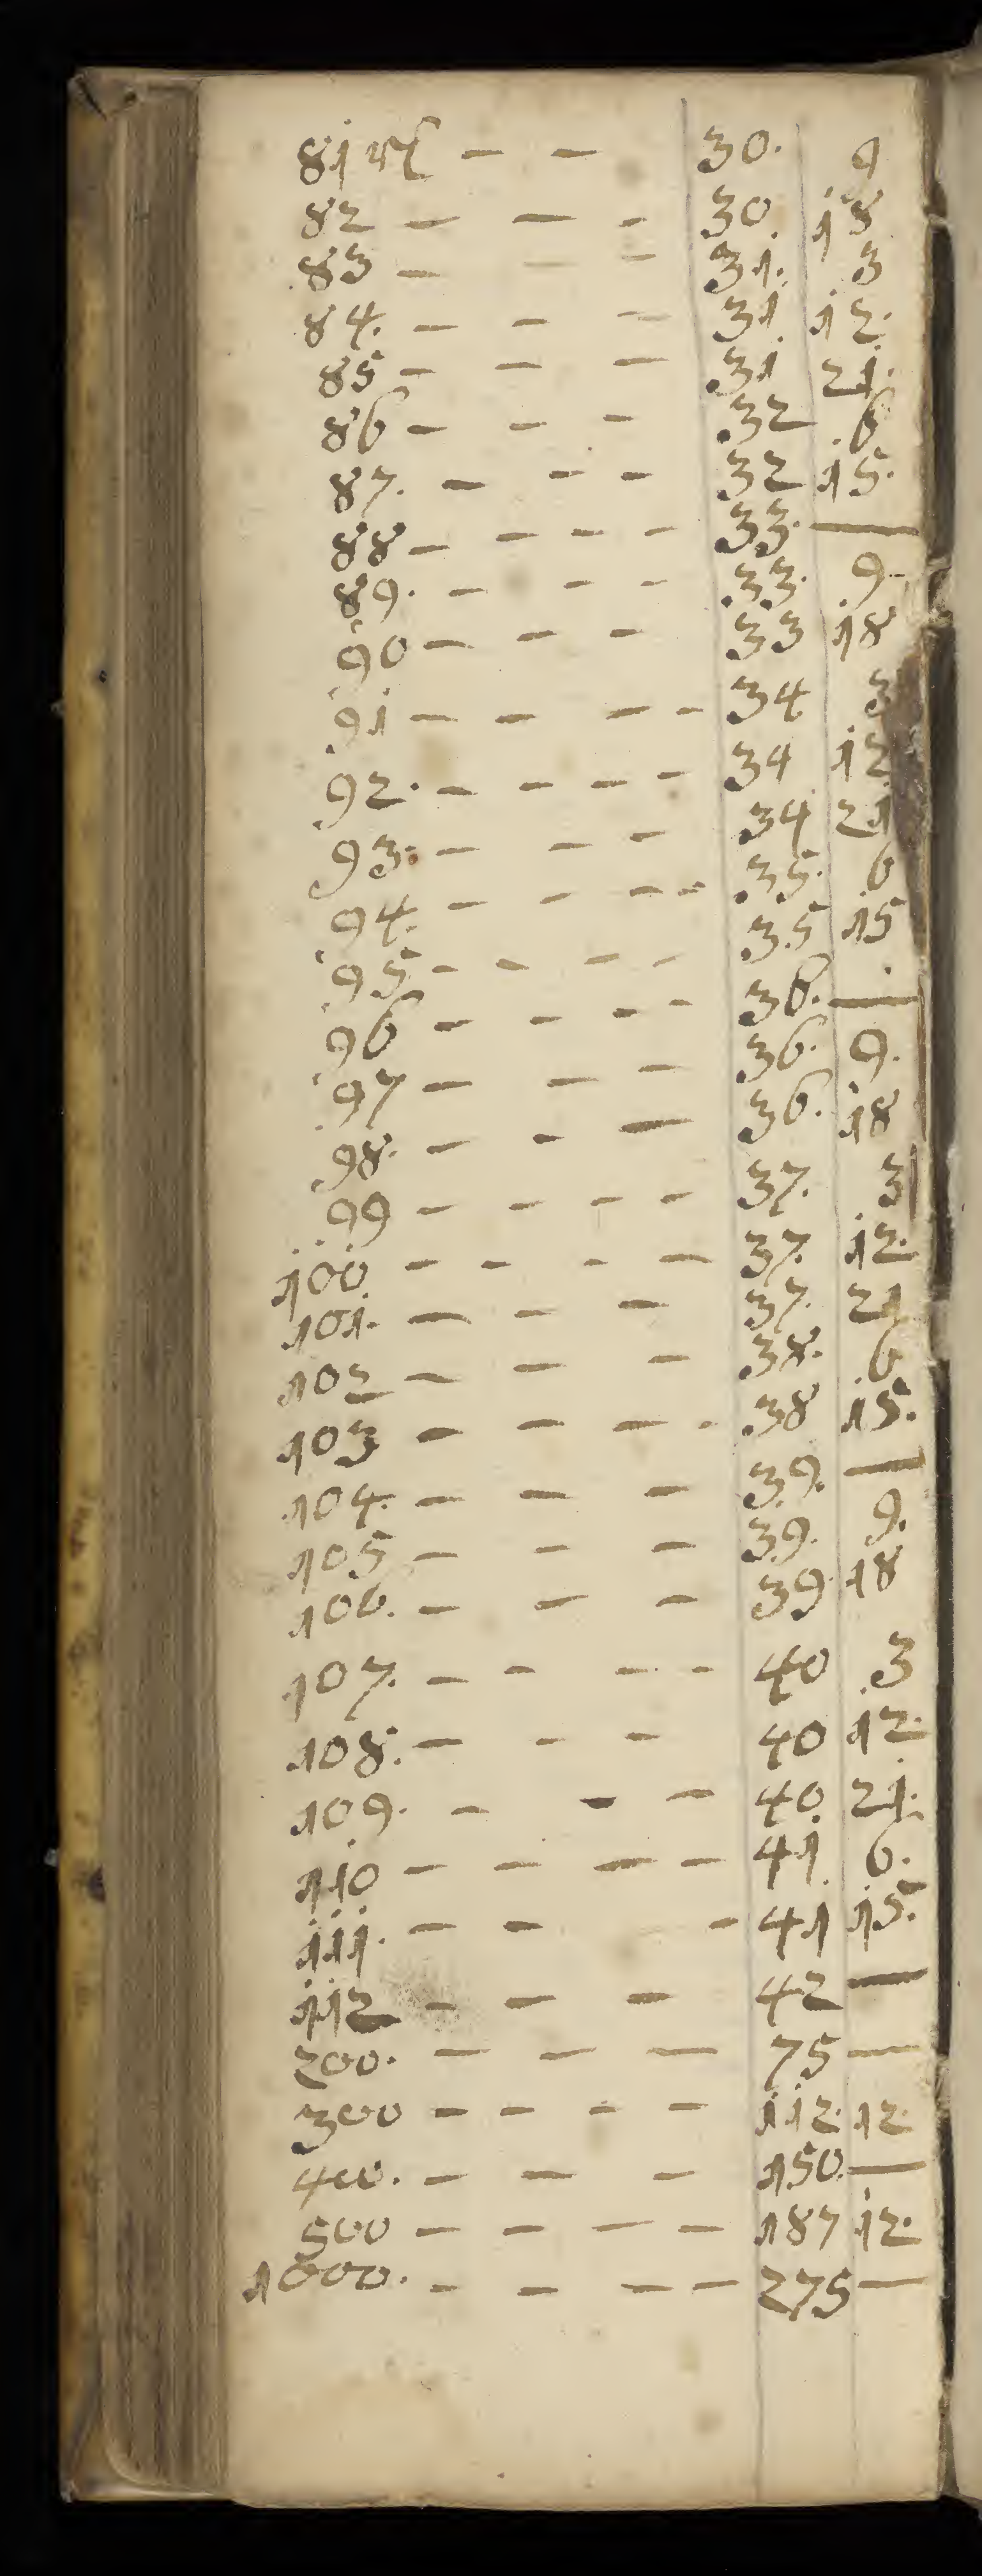 81 ℔ — — 30. 9
82 — — - 30. 18
83 — — — 31. 3
84. — — — 31 12.
85 — — — 31 21.
86 — — — 32 6
87. — — — 32 15.
88 — — — — 33. —
89. — — — 33. 9.
90 — — — 33 18
91 — — — — 34 3
92. — — — — 34 12
93. — — — 34 21
94. — — — - 35. 6
95 — — — — 35 15
96 — — — — 36. —
97 — — — 36. 9.
98. — — — 36. 18
99 — — — — 37. 3
100 — — — — 37. 12.
101. — — — 37. 21
102 — — — 38. 6
103 — — — - 38 15.
104. — — — 39. —
105 — — — 39. 9.
106. — — — 39 18
107. — — — — 40 3
108. — — — 40 12.
109. — — — 40. 21.
110 — — — — 41 6.
111. — — — 41 15.
112 — — — 42 —
200. — — — 75 —
300 — — — — 112. 12.
400. — — — 150. —
500 — — — — 187 12.
1000. — — — — 275 —